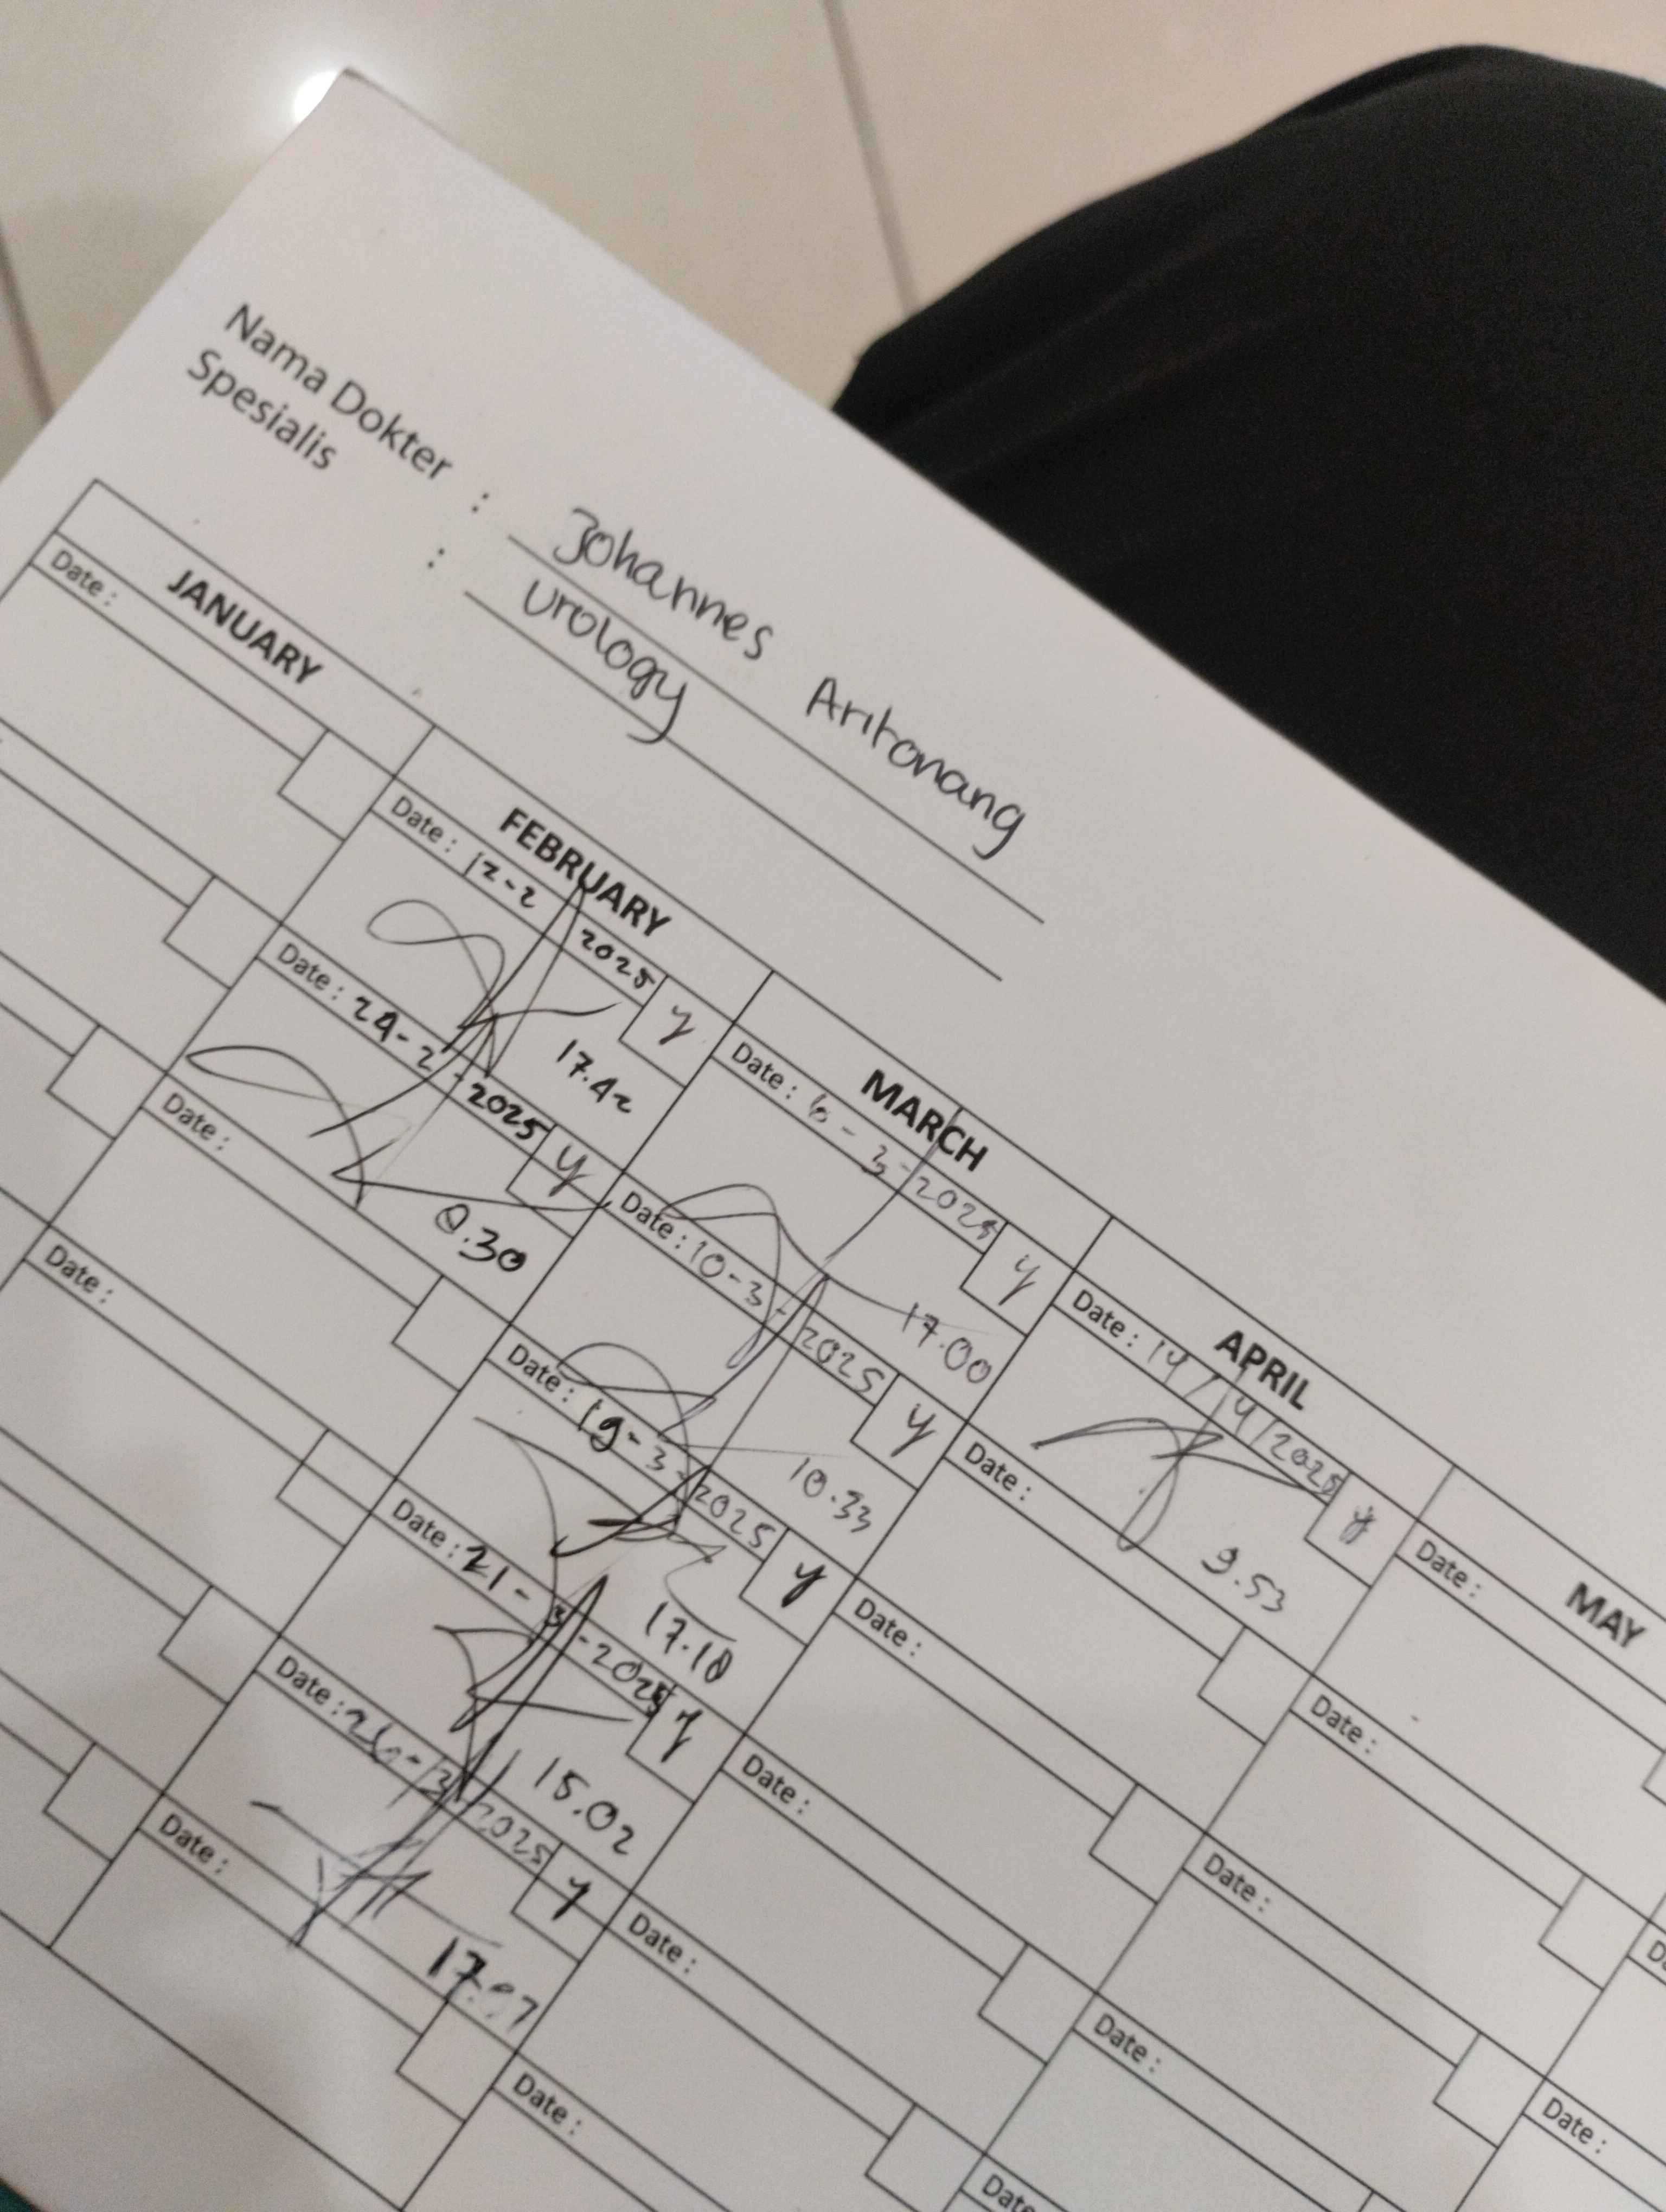 Nama Dokter : Johannes Aritonang
Spesialis : Urology
JANUARY
FEBRUARY
MARCH
APRIL
MAY
Date :
Date : 12-2 2025 y
17.42
Date : 6-3-2025 y
17.00
Date : 14/4/2025 y
9.53
Date :
Date : 24-2-2025 y
8.30
Date : 10-3-2025 y
10.33
Date :
Date :
Date :
Date : 19-3-2025 y
17.18
Date :
Date :
Date :
Date : 21-3-2025 y
15.02
Date :
Date :
Date : 26-3-2025 y
Date :
Date :
Date :
Date :
Date :